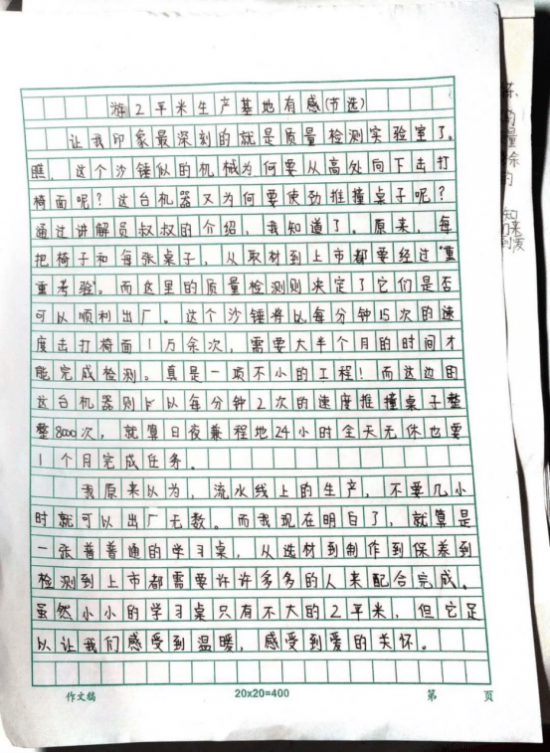 游2平米生产基地有感(节选)
让我印象最深刻的就是质量检测实验室了。
瞧，这个沙锤似的机械为何要从高处向下击打
椅面呢？这台机器又为何要使劲推撞桌子呢？
通过讲解员叔叔的介绍，我知道了。原来，每
把椅子和每张桌子，从取材到上市都要经过“重
重考验”。而这里的质量检测则决定了它们是否
可以顺利出厂。这个沙锤将以每分钟15次的速
度击打椅面1万余次，需要大半个月的时间才
能完成检测。真是一项不小的工程！而这边的
这台机器则以每分钟2次的速度推撞桌子整
整8000次，就算日夜兼程地24小时全天无休也要
1个月完成任务。
我原来以为，流水线上的生产，不要几小
时就可以出厂无数。而我现在明白了，就算是
一张普普通的学习桌，从选材到制作到保养到
检测到上市都需要许许多多的人来配合完成。
虽然小小的学习桌只有不大的2平米，但它足
以让我们感受到温暖，感受到爱的关怀。
作文稿 20x20=400 第 页
量
余
的
知